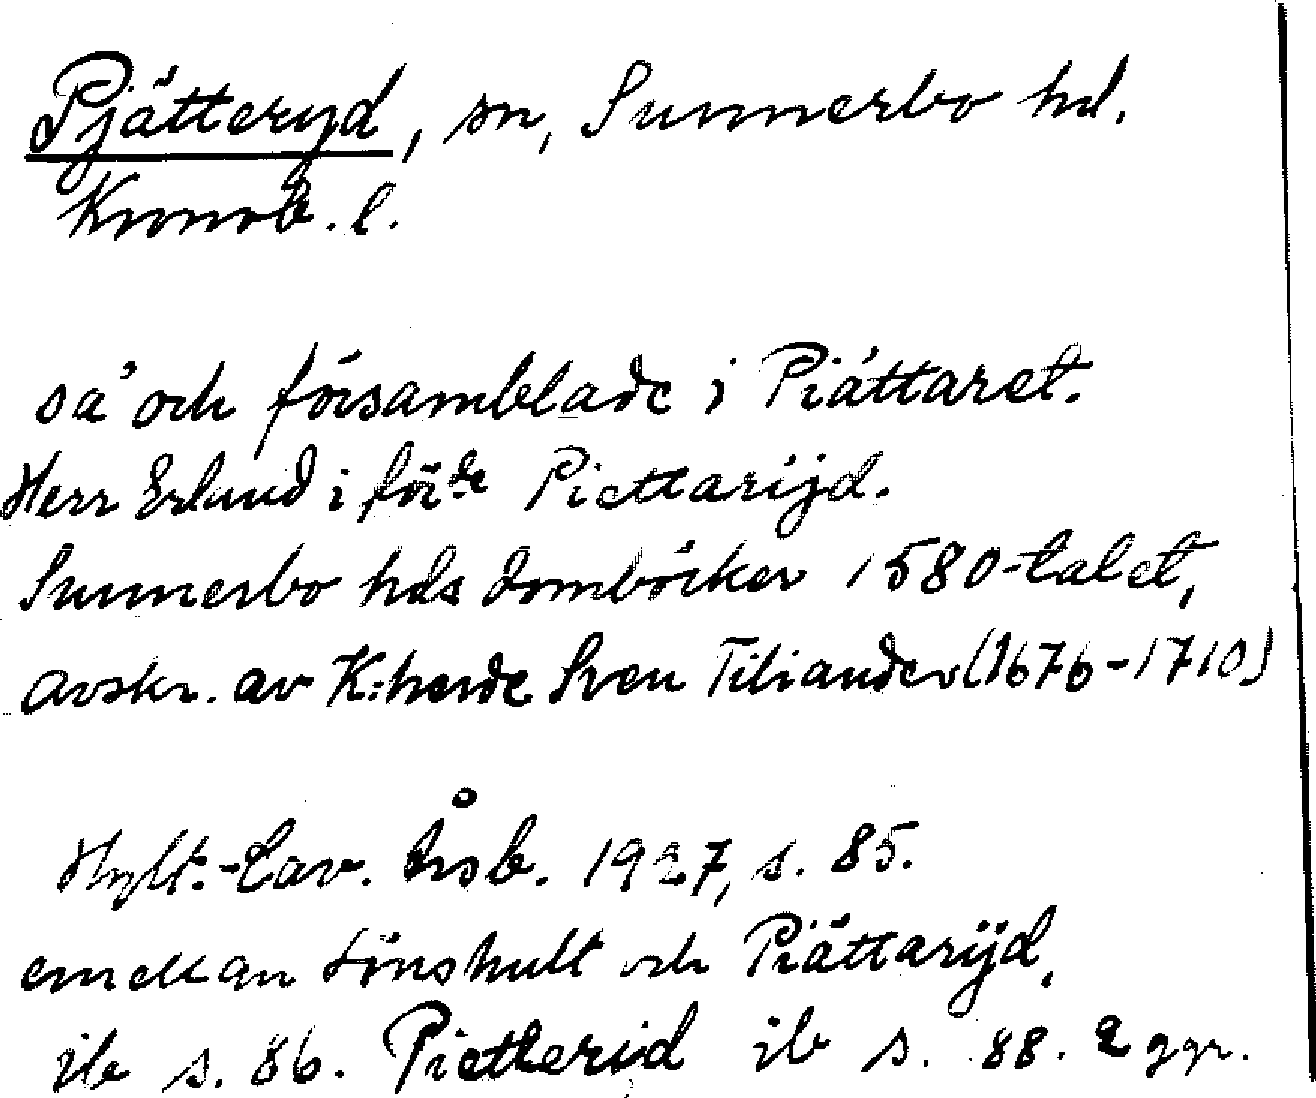 Pjätteryd, sn, Sunnerbo hd.
Kronob. l.
så och församblade i Piättaret.
Herr Erland i förde Piettarijd.
Sunnerbo hds domböcker 1580-talet,
avskr. av K:herde Sven Tiliander (1676-1710)
Hylt.-Cav. Årsb. 1927, s. 85.
emellan Lönshult och Piättarijd,
ib s. 86. Pietterid ib s. 88. 2 ggr.